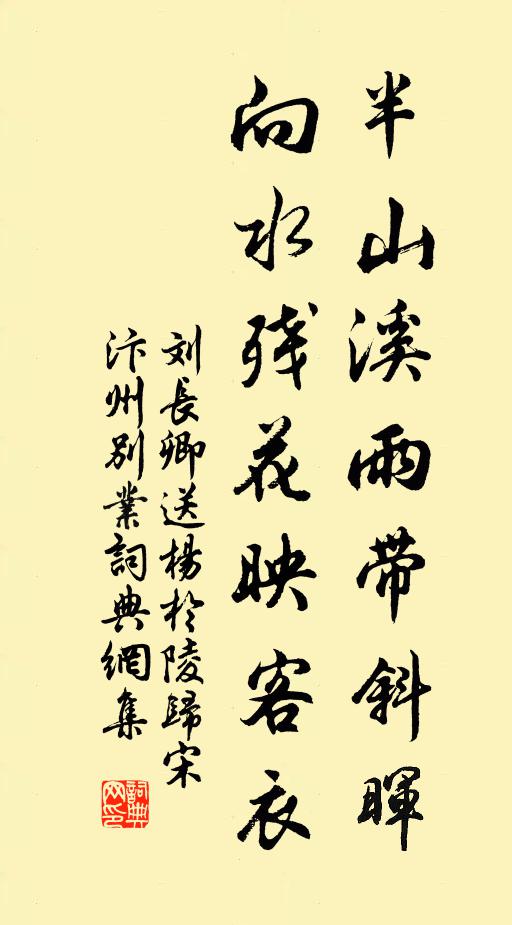 半山溪雨帶斜暉
向水残花映客衣
刘長卿送楊於陵歸宋
汴州別業詞典網集
詞典网印